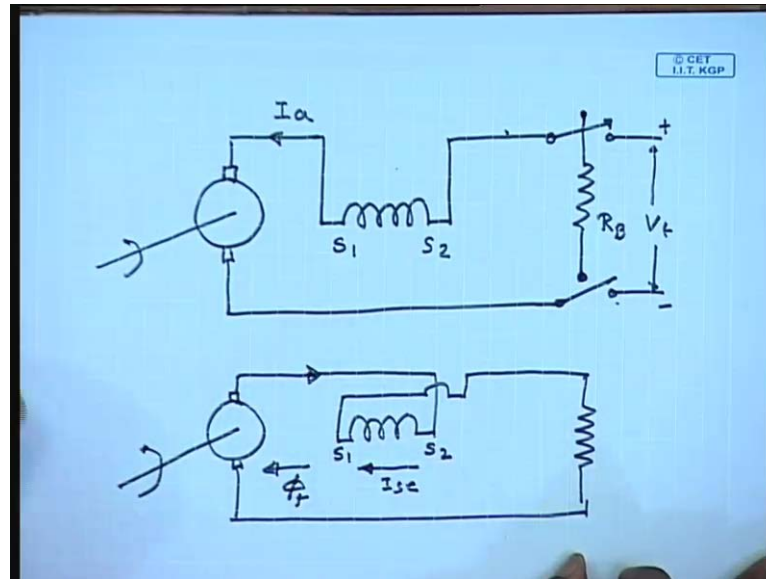 © CET
I.I.T. KGP
Ia
+
S1 S2
RB
Vt
-
S1 S2
Φf
Ise